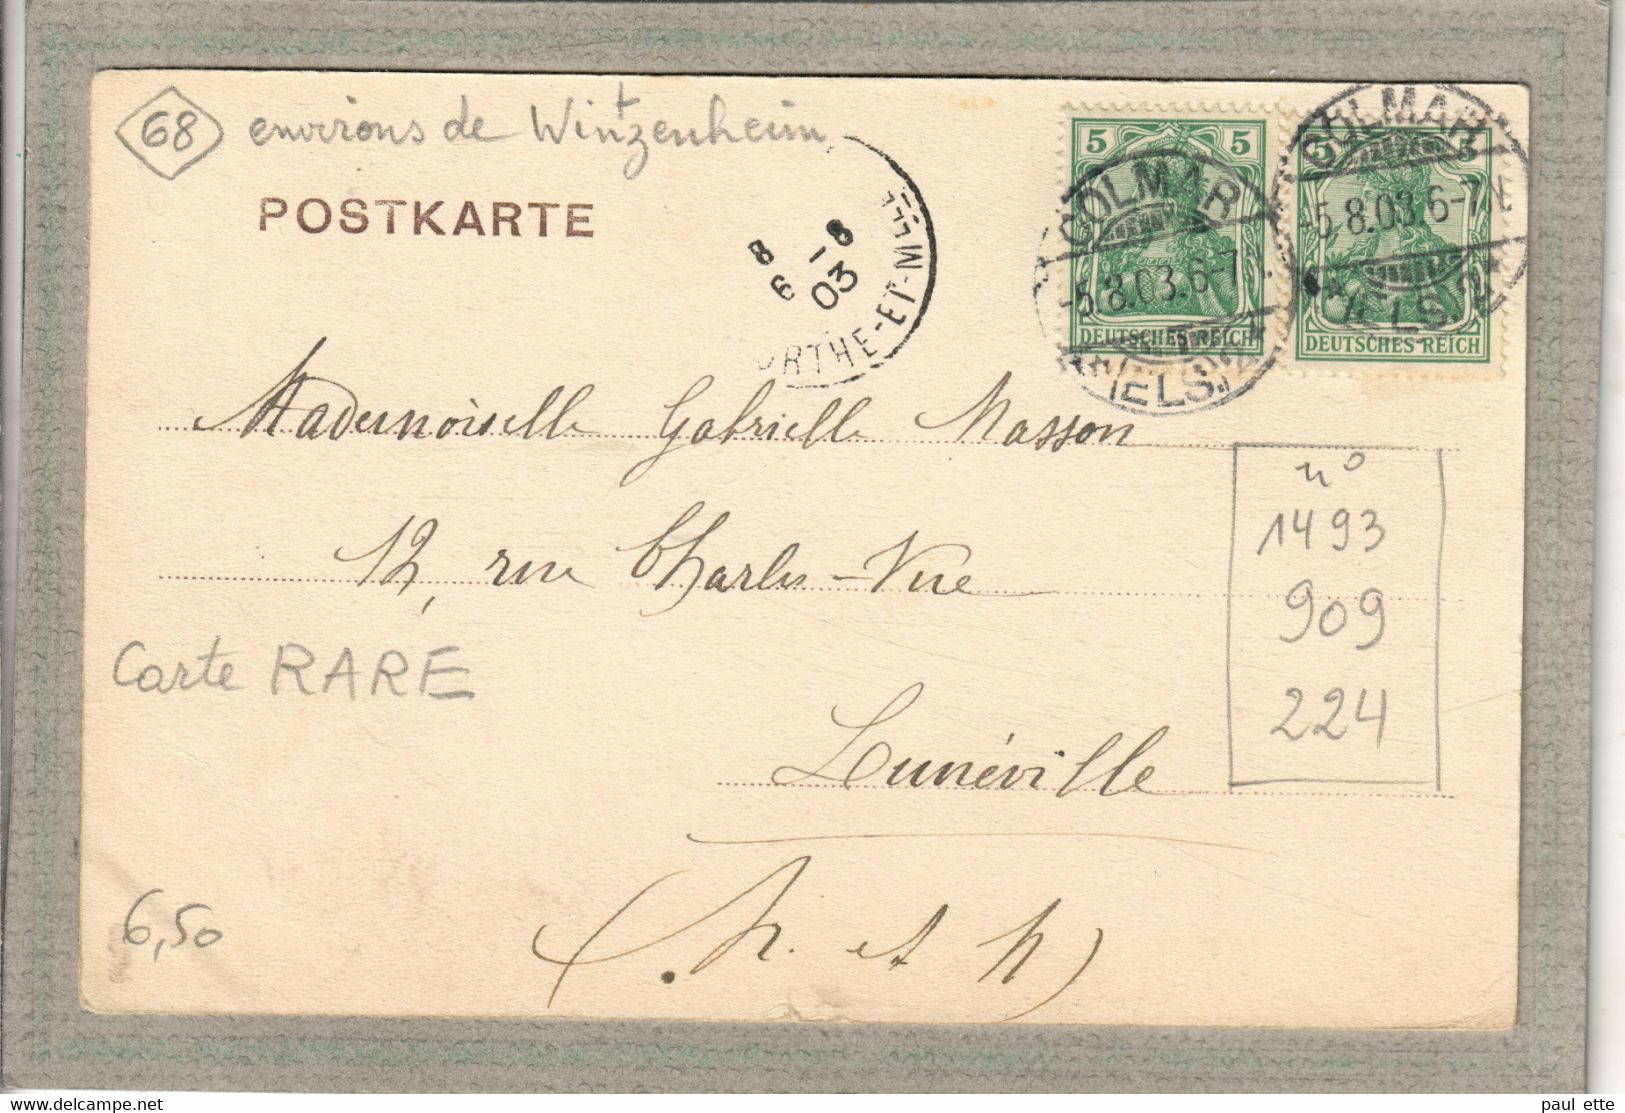 68 environs de Wintzenheim
POSTKARTE
8 6 -8 03
RTHE-ET-M
5 5
DEUTSCHES REICH
COLMAR
-5.8.03.6-7N.
(ELS.)
5 5
DEUTSCHES REICH
COLMAR
-5.8.03.6-7N.
(ELS.)
Mademoiselle Gabrielle Masson
12, rue Charles-Vue
Lunéville
(M. et M)
Carte RARE
6,50
n°
1493
909
224
delcampe.net
paul ette